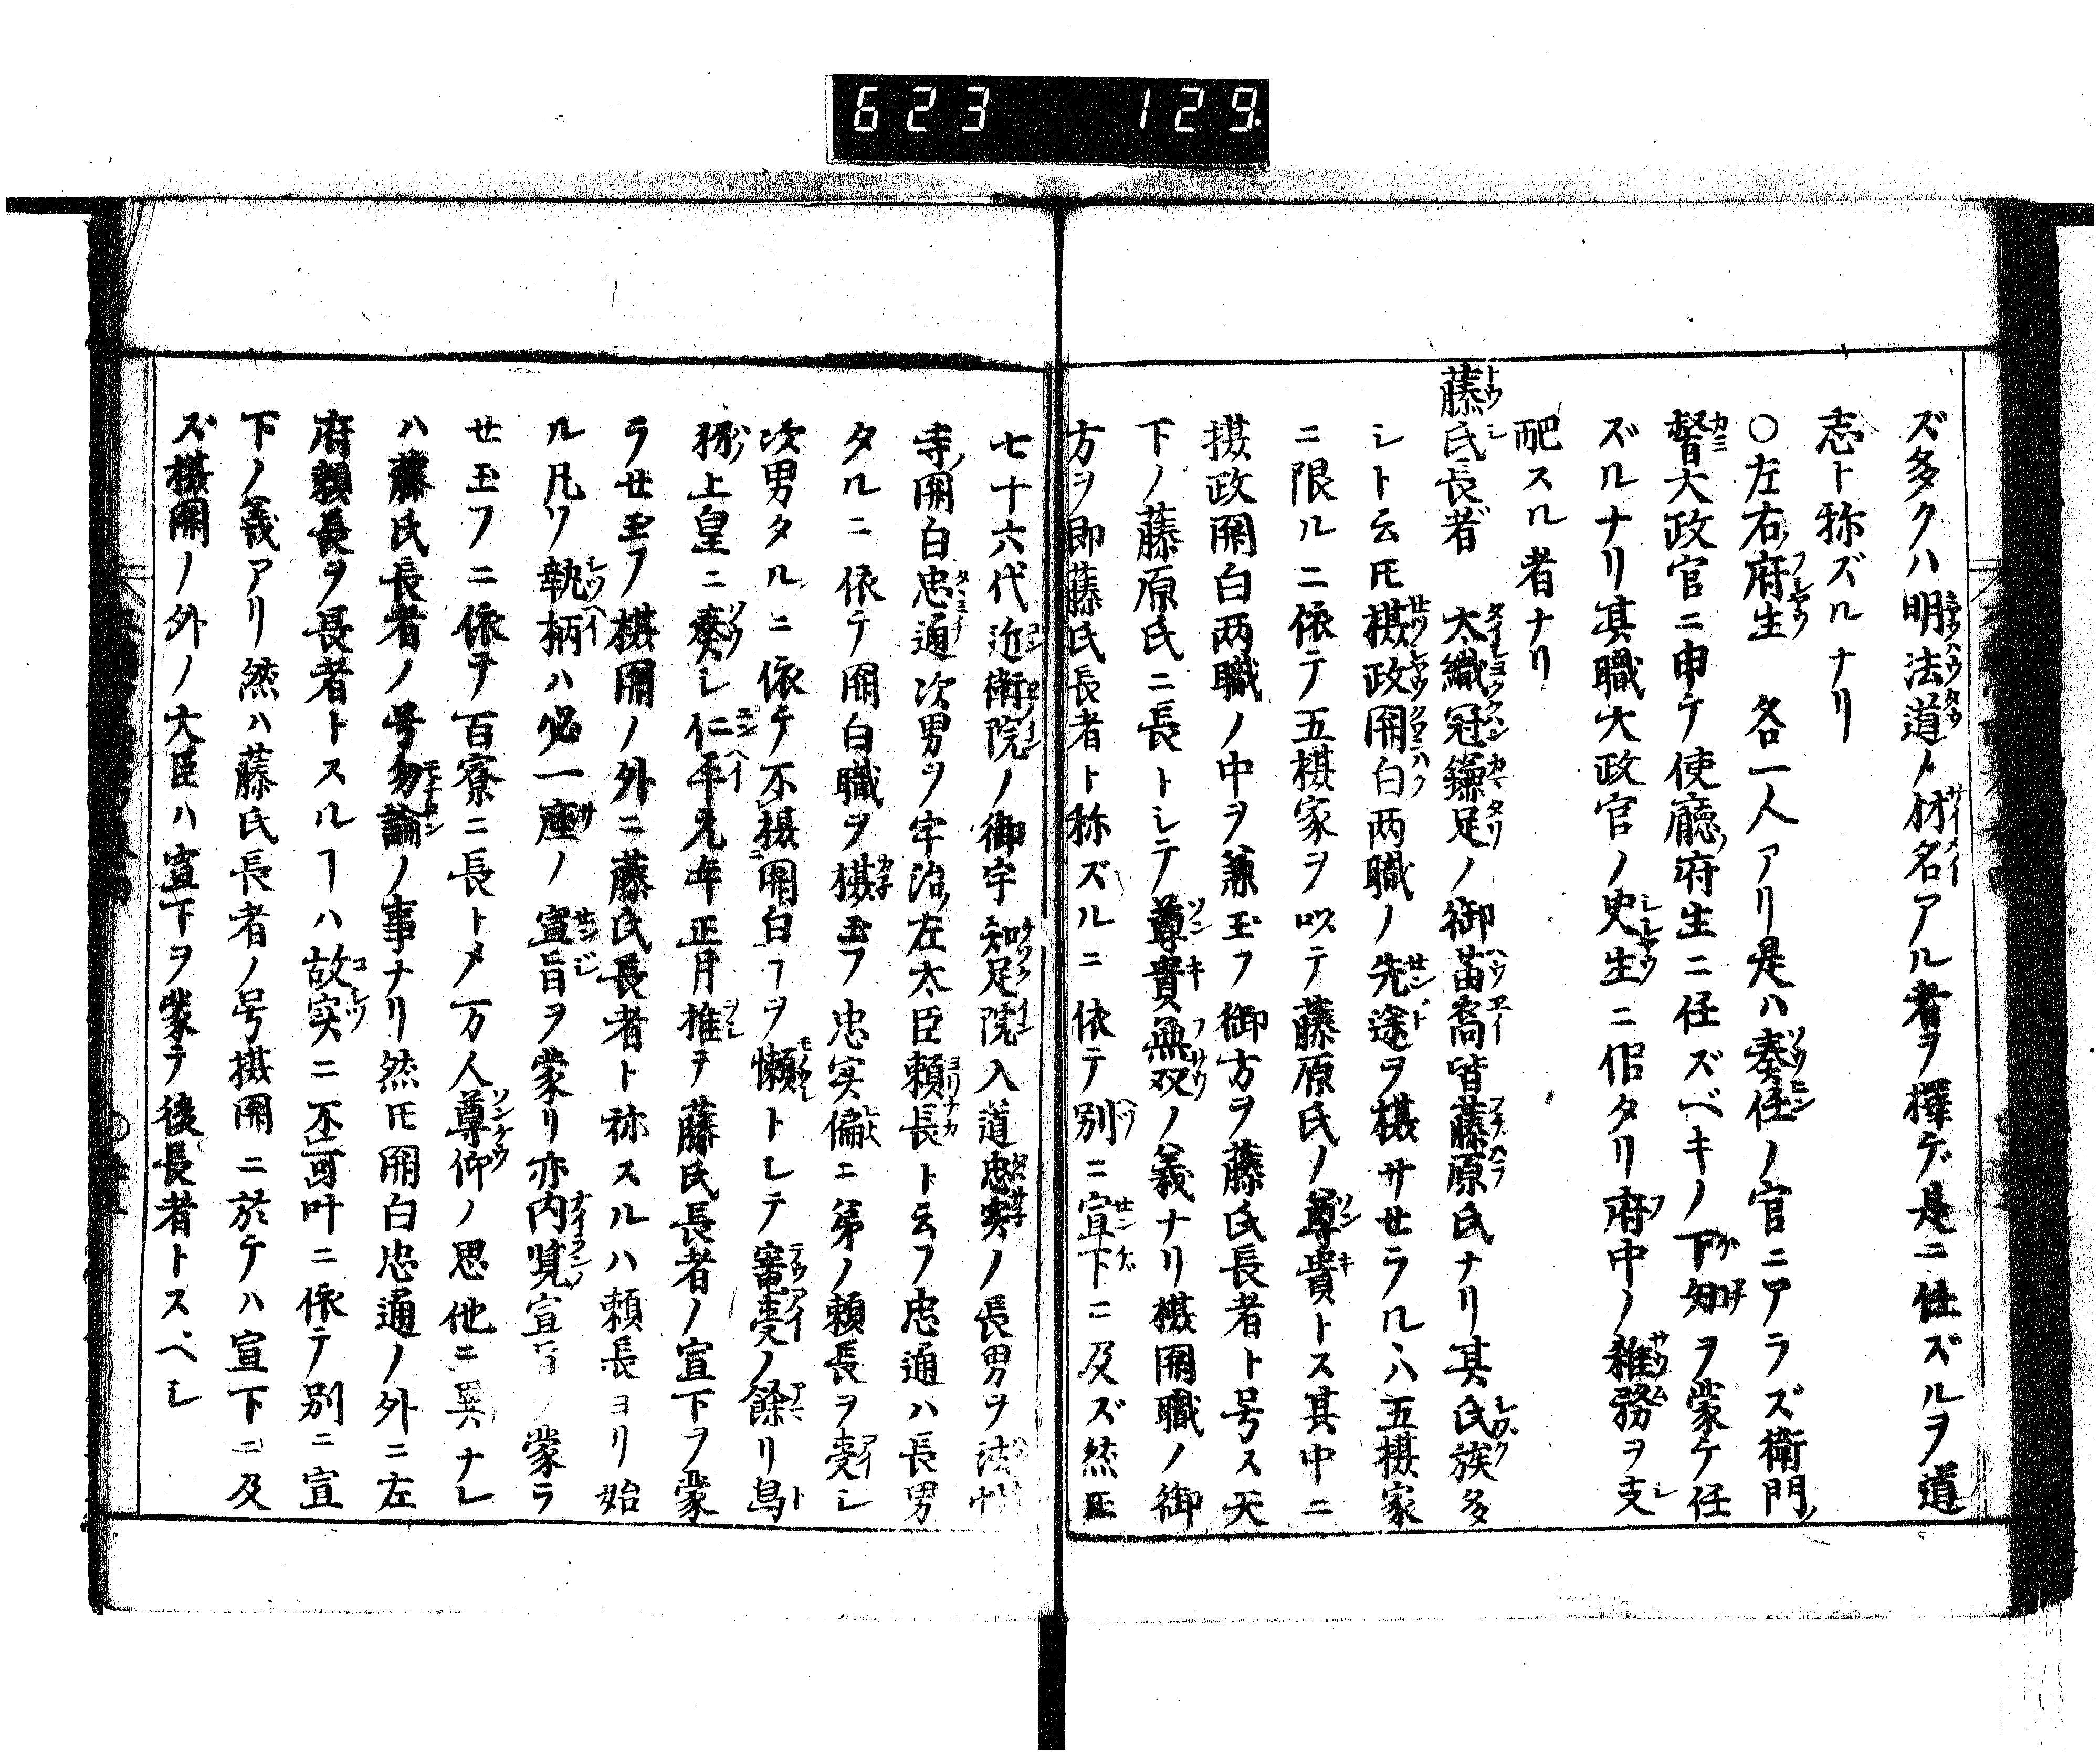 623 129.
ズ多クハ明法道ノ材名アル者ヲ擇デ是ニ任ズルヲ道
志ト称ズルナリ
〇左右ノ府生 各一人アリ是ハ奏任ノ官ニアラズ衛門ノ
督大政官ニ申テ使廳ノ府生ニ任ズベキノ下知ヲ蒙テ任
ズルナリ其職大政官ノ史生ニ佀タリ府中ノ雜務ヲ支
配スル者ナリ
藤氏長者 大織冠鎌足ノ御苗裔皆藤原氏ナリ其氏族多
シト云𪜈摂政関白両職ノ先途ヲ摂サセラルヽハ五摂家
ニ限ルニ依テ五摂家ヲ以テ藤原氏ノ尊貴トス其中ニ
摂政関白両職ノ中ヲ兼玉フ御方ヲ藤氏長者ト号ス天
下ノ藤原氏ニ長トシテ尊貴無双ノ義ナリ摂関職ノ御
方ヲ即藤氏長者ト称ズルニ依テ別ニ宣下ニ及ズ然𪜈
七十六代近衛院ノ御宇知足院入道忠実ノ長男ヲ法性
寺ノ関白忠通次男ヲ宇治ノ左大臣頼長ト云フ忠通ハ長男
タルニ依テ関白職ヲ摂玉フ忠実偏ニ弟ノ頼長ヲ愛シ
次男タルニ依テ不摂関白ヿヲ懶トシテ寵愛ノ餘リ鳥
羽ノ上皇ニ奏シ仁平元年正月推ヲ藤氏長者ノ宣下ヲ蒙
ラせ玉フ摂関ノ外ニ藤氏長者ト称スルハ頼長ヨリ始
ル凡ソ執柄ハ必一座ノ宣旨ヲ蒙リ亦内覧ノ宣旨ノ蒙ラ
せ玉フニ依ヲ百寮ニ長トメ万人尊仰ノ思他ニ異ナレ
ハ藤氏長者ノ号勿論ノ事ナリ然𪜈関白忠通ノ外ニ左
府頼長ヲ長者トスルヿハ故実ニ不可叶ニ依テ別ニ宣
下ノ義アリ然ハ藤氏長者ノ号摂関ニ於テハ宣下ニ及
ズ摂関ノ外ノ大臣ハ宣下ヲ蒙テ後長者トスベシ